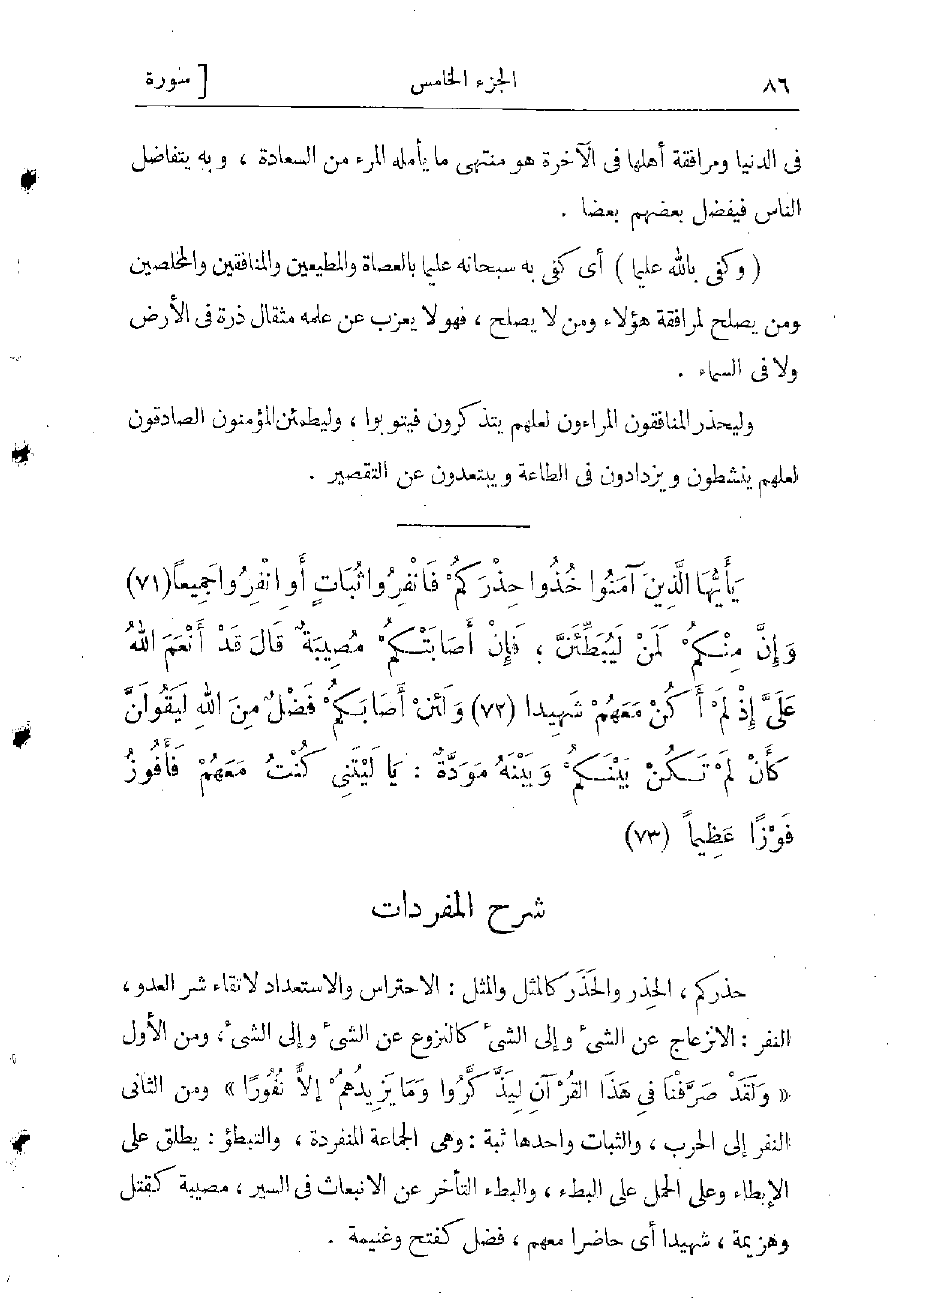 ٨٦ الجزء الخامس [ سورة
فى الدنيا ومرافقة أهلها فى الآخرة هو منتهى ما يأمله المرء من السعادة ، وبه يتفاضل
الناس فيفضل بعضهم بعضا .
( وكفى بالله عليما ) أى كفى به سبحانه عليما بالعصاة والمطيعين والمنافقين والمخلصين
ومن يصلح لمرافقة هؤلاء ومن لا يصلح ، فهو لا يعزب عن علمه مثقال ذرة فى الأرض
ولا فى السماء .
وليحذر المنافقون المراءون لعلهم يتذكرون فيتوبوا ، وليطمئن المؤمنون الصادقون
لعلهم ينشطون ويزدادون فى الطاعة ويبتعدون عن التقصير .
يَأَيُّهَا الَّذِينَ آمَنُوا خُذُوا حِذْرَكُمْ فَانْفِرُوا ثُبَاتٍ أَوِ انْفِرُوا جَمِيعاً (٧١)
وَإِنَّ مِنْكُمْ لَمَنْ لَيُبَطِّئَنَّ ؛ فَإِنْ أَصَابَتْكُمْ مُصِيبَةٌ قَالَ قَدْ أَنْعَمَ اللهُ
عَلَىَّ إِذْ لَمْ أَكُنْ مَعَهُمْ شَهِيدا (٧٢) وَلَئِنْ أَصَابَكُمْ فَضْلٌ مِنَ اللهِ لَيَقُولَنَّ
كَأَنْ لَمْ تَكُنْ بَيْنَكُمْ وَبَيْنَهُ مَوَدَّةٌ : يَا لَيْتَنِى كُنْتُ مَعَهُمْ فَأَفُوزُ
فَوْزًا عَظِيماً (٧٣)
شرح المفردات
حذركم ، الحِذر والحَذَر كالمثل والمثل : الاحتراس والاستعداد لاتقاء شر العدو ،
النفر : الانزعاج عن الشىء وإلى الشىء كالنزوع عن الشىء وإلى الشىء ، ومن الأول
« وَلَقَدْ صَرَّفْنَا فِى هَذَا القُرْآنِ لِيَذَّكَّرُوا وَمَا يَزِيدُهُمْ إِلاَّ نُفُورًا » ومن الثانى
النفر إلى الحرب ، والثبات واحدها ثبة : وهى الجماعة المنفردة ، والتبطؤ : يطلق على
الإبطاء وعلى الحمل على البطء ، والبطء التأخر عن الانبعاث فى السير ، مصيبة كقتل
وهزيمة ، شهيدا أى حاضرا معهم ، فضل كفتح وغنيمة .